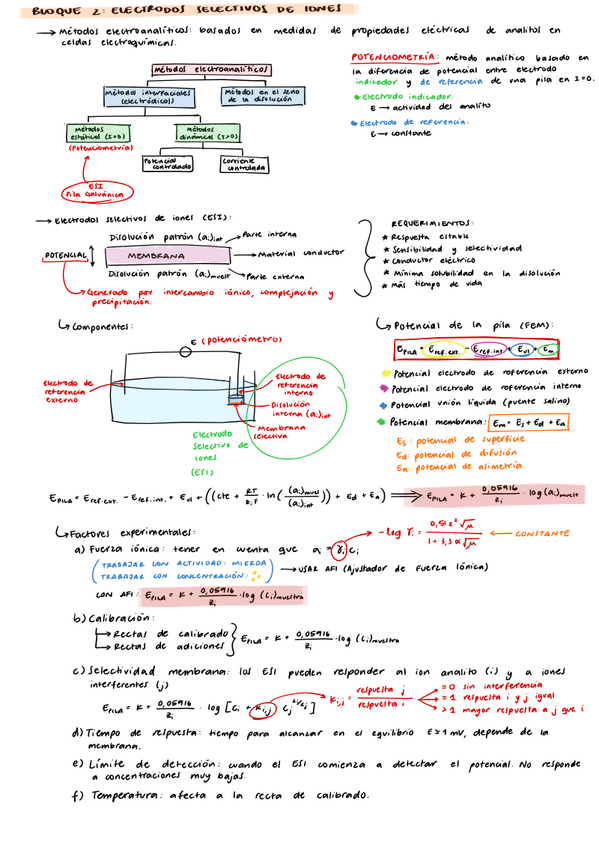 BLOQUE 2: ELECTRODOS SELECTIVOS DE IONES
→ Métodos electroanalíticos: basados en medidas de propiedades eléctricas de analitos en
celdas electroquímicas.
Métodos electroanalíticos
Métodos interfaciales
(electródicos)
Métodos en el seno
de la disolución
Métodos
estáticos (I=0)
Métodos
dinámicos (I>0)
(Potenciometría)
Potencial
controlado
Corriente
controlada
ESI
Pila Galvánica
POTENCIOMETRÍA: método analítico basado en
la diferencia de potencial entre electrodo
indicador y de referencia de una pila en I=0.
Electrodo indicador:
E → actividad del analito
Electrodo de referencia:
E → constante
→ Electrodos selectivos de iones (ESI):
Disolución patrón (ai)int → Parte interna
POTENCIAL
MEMBRANA → Material conductor
Disolución patrón (ai)muestr → Parte externa
→ Generado por intercambio iónico, complejación y
precipitación.
REQUERIMIENTOS:
★ Respuesta estable
★ Sensibilidad y selectividad
★ Conductor eléctrico
★ Mínima solubilidad en la disolución
★ Más tiempo de vida
↳ Componentes:
E (potenciómetro)
Electrodo de
referencia
externo
Electrodo de
referencia
interno
Disolución
interna (ai)int
Membrana
selectiva
Electrodo
selectivo de
iones
(ESI)
↳ Potencial de la pila (FEM):
EPILA = Eref.ext. - Eref.int. + Eul + Em
Potencial electrodo de referencia externo
Potencial electrodo de referencia interno
Potencial unión líquida (puente salino)
Potencial membrana: Em = Es + Ed + Ea
Es: potencial de superficie
Ed: potencial de difusión
Ea: potencial de asimetría
EPILA = Eref.ext. - Eref.int. + Eul + ((cte + RT/ziF · ln ((ai)muest/(ai)int)) + Ed + Ea) ⟹ EPILA = K + 0,05916/zi · log (ai)muestr
↳ Factores experimentales:
a) Fuerza iónica: tener en cuenta que ai = γi ci
-log γi = 0,51 z² √μ / 1 + 3,3 α √μ ← CONSTANTE
(TRABAJAR CON ACTIVIDAD: MIERDA
TRABAJAR CON CONCENTRACIÓN: ✨) → USAR AFI (Ajustador de Fuerza Iónica)
CON AFI: EPILA = K + 0,05916/zi · log (ci)muestra
b) Calibración:
→ Rectas de calibrado
→ Rectas de adiciones
EPILA = K + 0,05916/zi · log (ci)muestra
c) Selectividad membrana: los ESI pueden responder al ion analito (i) y a iones
interferentes (j)
EPILA = K + 0,05916/zi · log [ci + Ki,j cj^zi/zj]
Ki,j = respuesta j / respuesta i
= 0 sin interferencia
= 1 respuesta i y j igual
> 1 mayor respuesta a j que i
d) Tiempo de respuesta: tiempo para alcanzar en el equilibrio E±1 mV, depende de la
membrana.
e) Límite de detección: cuando el ESI comienza a detectar el potencial. No responde
a concentraciones muy bajas.
f) Temperatura: afecta a la recta de calibrado.